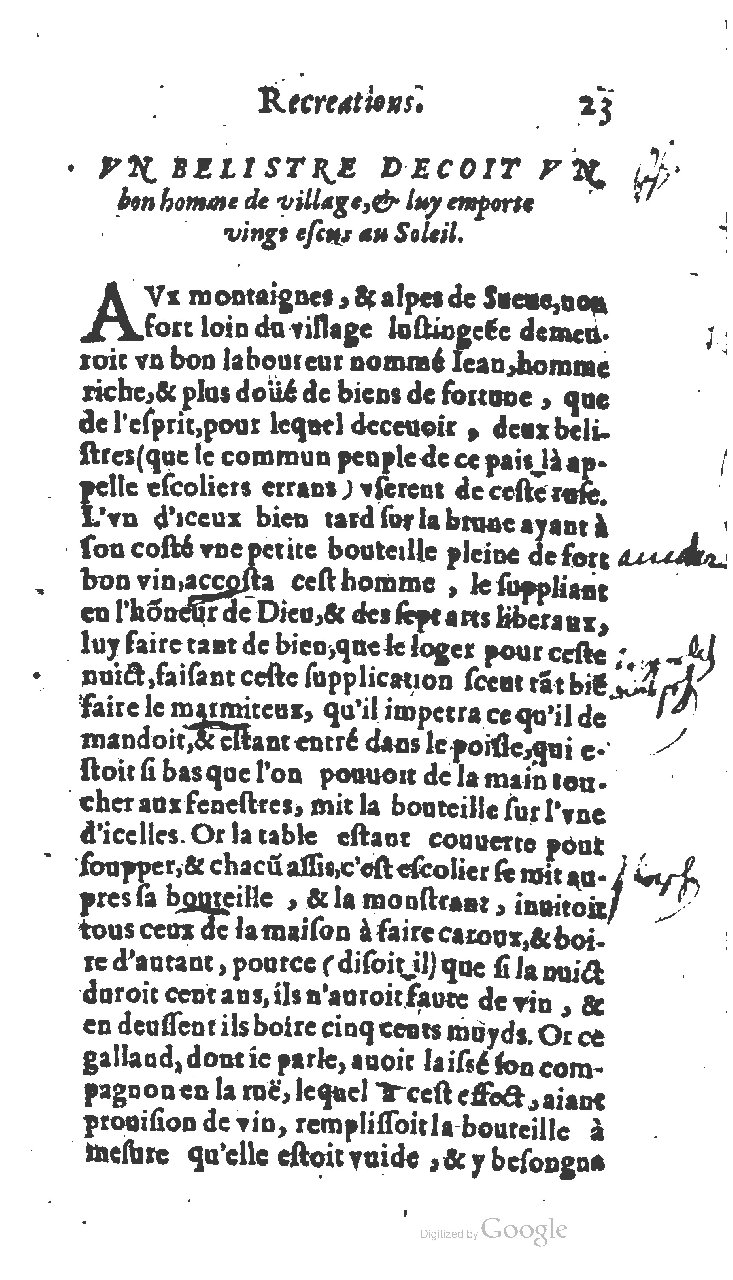 Recreations. 23
VN BELISTRE DECOIT VN
bon homme de village, & luy emporte
vingt eſcus au Soleil.
AVx montaignes, & alpes de Sueue, non
fort loin du village Inſtingeée demeu-
roit vn bon laboureur nommé Iean, homme
riche, & plus doüé de biens de fortune, que
de l'eſprit, pour lequel deceuoir, deux beli-
ſtres (que le commun peuple de ce pais là ap-
pelle eſcoliers errans) vſerent de ceſte ruſe.
L'vn d'iceux bien tard ſur la brune ayant à
ſon coſté vne petite bouteille pleine de fort
bon vin, accoſta ceſt homme, le ſuppliant
en l'hõneur de Dieu, & des ſept arts liberaux,
luy faire tant de bien, que le loger pour ceſte
nuict, faiſant ceſte ſupplication ſceut tãt biẽ
faire le marmiteux, qu'il impetra ce qu'il de
mandoit, & eſtant entré dans le poiſle, qui e-
ſtoit ſi bas que l'on pouuoit de la main tou-
cher aux feneſtres, mit la bouteille ſur l'vne
d'icelles. Or la table eſtant couuerte pour
ſoupper, & chacũ aſſis, c'eſt eſcolier ſe mit au-
pres ſa bouteille, & la monſtrant, inuitoit
tous ceux de la maiſon à faire caroux, & boi-
re d'autant, pource (diſoit il) que ſi la nuict
duroit cent ans, ils n'auroit faute de vin, &
en deuſſent ils boire cinq cents muyds. Or ce
galland, dont ie parle, auoit laiſsé ſon com-
pagnon en la ruë, lequel à ceſt effect, aiant
prouiſion de vin, rempliſſoit la bouteille à
meſure qu'elle eſtoit vuide, & y beſongna
Digitized by Google